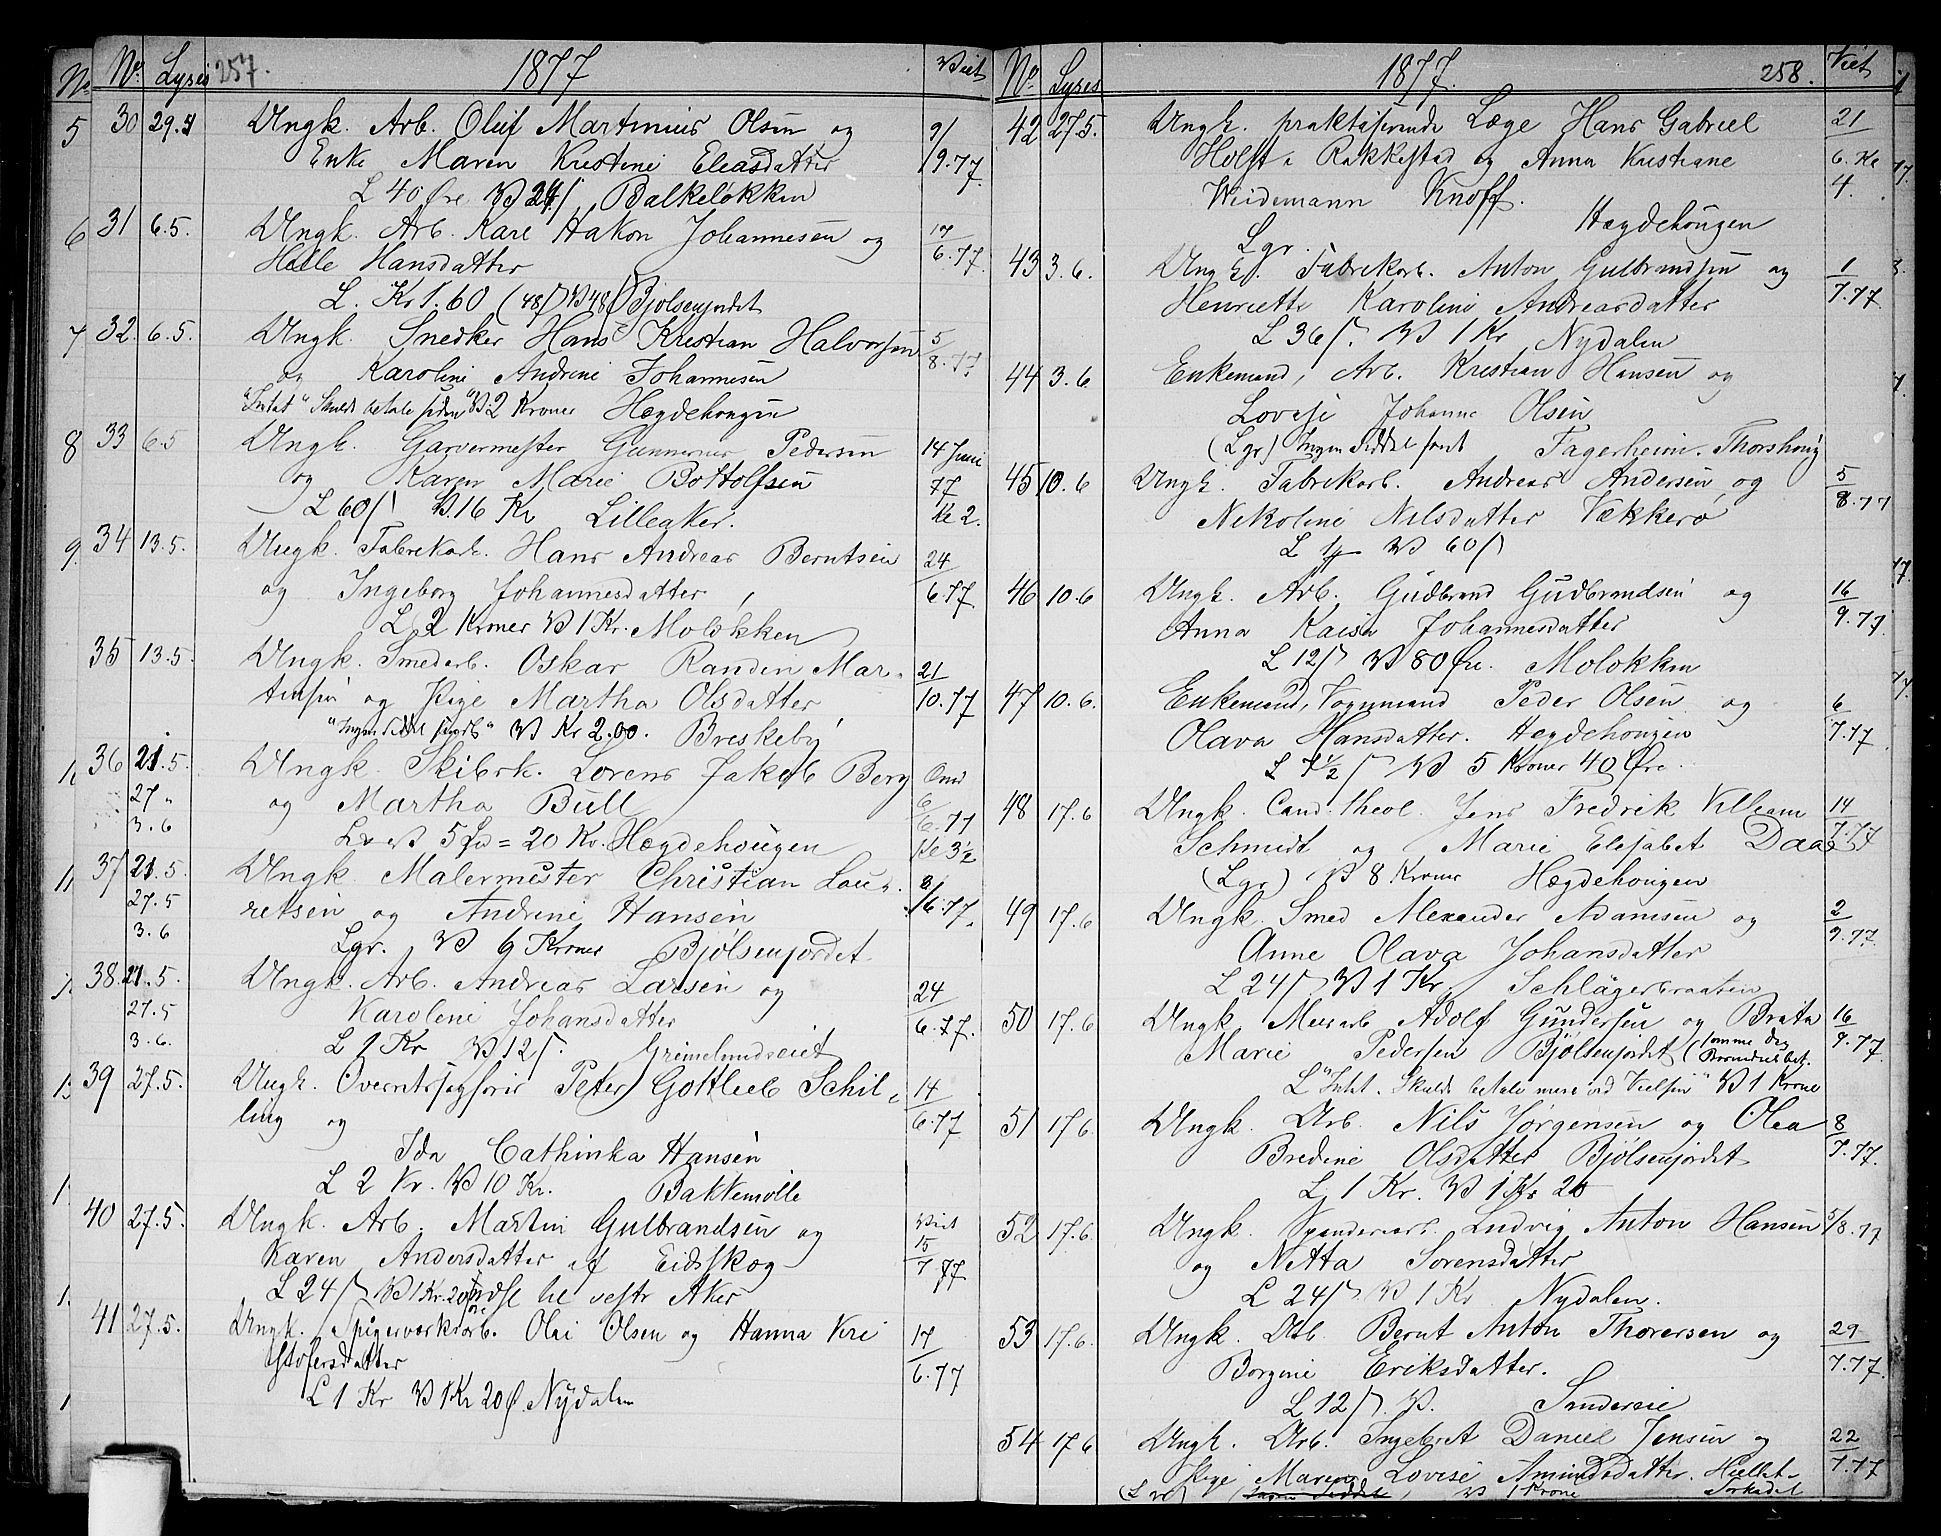 No. Lyses 257. 1877 Viet
30 29.4 Ungk. Arb. Oluf Martinius Olsen og 9/9.77.
Enke Maren Kristine Eleasdatter
L 40 Øre V 24 ʃ Balkeløkken
31 6.5. Ungk. Arb. Karl Hakon Johannesen og 17/6.77.
Helle Hansdatter
L. Kr 1.60 (48ʃ) V 48ʃ Bjølsenjordet
32. 6.5. Ungk. Snedker Hans Kristian Halvorsen 5/8.77
og Karoline Andrine Johannesen
"Intet" Skulde betale siden" V. 2 Kroner Hægdehougen
33 6.5 Ungk. Garvermester Gunnerius Pedersen 14 Juni
og Karen Marie Bottolfsen 77
L 60ʃ V. 16 Kr Lilleaker. Kl 2.
34 13.5. Ungk. Fabrekarb. Hans Andreas Berntsen 24
og Ingeborg Johannesdatter, 6.77
L 2 Kroner V 1 Kr. Moløkken
35 13.5. Ungk. Smedarb. Oskar Randin Mar- 21
tinsen og Pige Martha Olsdatter 10.77
"Ingen Seddel" V Kr 2.00. Breskeby
36 21.5. Ungk. Skibsk. Lorens Jakob Berg Ond
27 " og Martha Bull 6/6.77
3.6 L V 5 Spd = 20 Kr. Hægdehougen Kl 3½
37 21.5 Ungk. Malermester Christian Lau- 8/6.77.
27.5 retsen og Andrine Hansen
3.6 Lgr. V 6 Kroner Bjølsenjordet
38. 21.5 Ungk. Arb. Andreas Larsen og 24
27.5 Karoline Johansdatter 6.77.
3.6. L 1 Kr V 12ʃ. Grimelundseiet
39 27.5. Ungk. Overretssagfører Peter Gottlieb Schil- 14
ling og 6.77
Ida Cathinka Hansen
L 2 Kr. V 10 Kr. Bakkemølle
40 27.5. Ungk. Arb. Martin Gulbrandsen og Viet 15
Karen Andersdatter af Eidskog 7 77
L 24ʃ V 1 Kr. 20 Øre vestr Aker
41 27.5. Ungk. Spigerverksarb. Olai Olsen og Hanna Kri 17
stofersdatter 6.77
L 1 Kr V 1 Kr 20 Ø. Nydalen
No. Lyses 1877. 258. Viet
42 27.5. Ungk. praktiserende Læge Hans Gabriel 21
Holst i Rakkestad og Anna Kristiane 6. Kl
Weidemann Knoff. 4.
Lgr. Hægdehougen
43 3.6. Ungk. Fabrekarb. Anton Gulbrandsen og 1
Henriette Karoline Andreasdatter 7.77.
L 36ʃ. V 1 Kr Nydalen
44 3.6 Enkemand, Arb. Kristian Hansen og
Lovise Johanne Olsen
(Lgr) Ingen Seddel Fagerheim. Thorshoug
45 10.6 Ungk. Fabrekarb. Andreas Andersen og 5
Nikoline Nilsdatter Vækkerø 8.77
L V 60ʃ
46 10.6 Ungk. Arb. Gudbrand Gudbrandsen og 16
Anna Kaisa Johannesdatter 9.77.
L 12ʃ V 80 Øre. Moløkken
47 10.6. Enkemand, Vognmand Peder Olsen og 6
Olava Hansdatter. Hægdehougen 7.77
L 7½ʃ V 5 Kroner 40 Øre.
48 17.6 Ungk. Cand. theol. Jens Fredrik Villiam 14
Schmidt og Marie Elisabet Daae 7.77
(Lgr) V 8 Kroner Hægdehougen
49 17.6 Ungk. Smed Alexander Adamsen og 2
Anne Olava Johansdatter 9.77.
L 24ʃ V 1 Kr. Schlägerbraaten
50 17.6 Ungk. Murarb Adolf Gundersen og Brata 16
Marie Pedersen Bjølsenjordet (samme dag 9.77.
L "Intet. Skulde betale mere ved Vielsen" V 1 Krone
51 17.6 Ungk. Arb. Nils Jørgensen og Olea 8
Bredine Olsdatter Bjølsenjordet 7.77.
L. 1 Kr. V 1 Kr 20
52 17.6. Ungk. Spinderiarb. Ludvig Anton Hansen 5/8.77
og Netta Sorensdatter
L 24ʃ V 1 Kr Nydalen.
53 17.6. Ungk. Arb. Bernt Anton Thoresen og 29
Borgine Eriksdatter. 7.77.
L 12ʃ. V.
54 17.6 Ungk. Arb. Ingebret Daniel Jensen og 22
Pige Maren Lovise Amundsdatter. 7.77
V 1 Krone